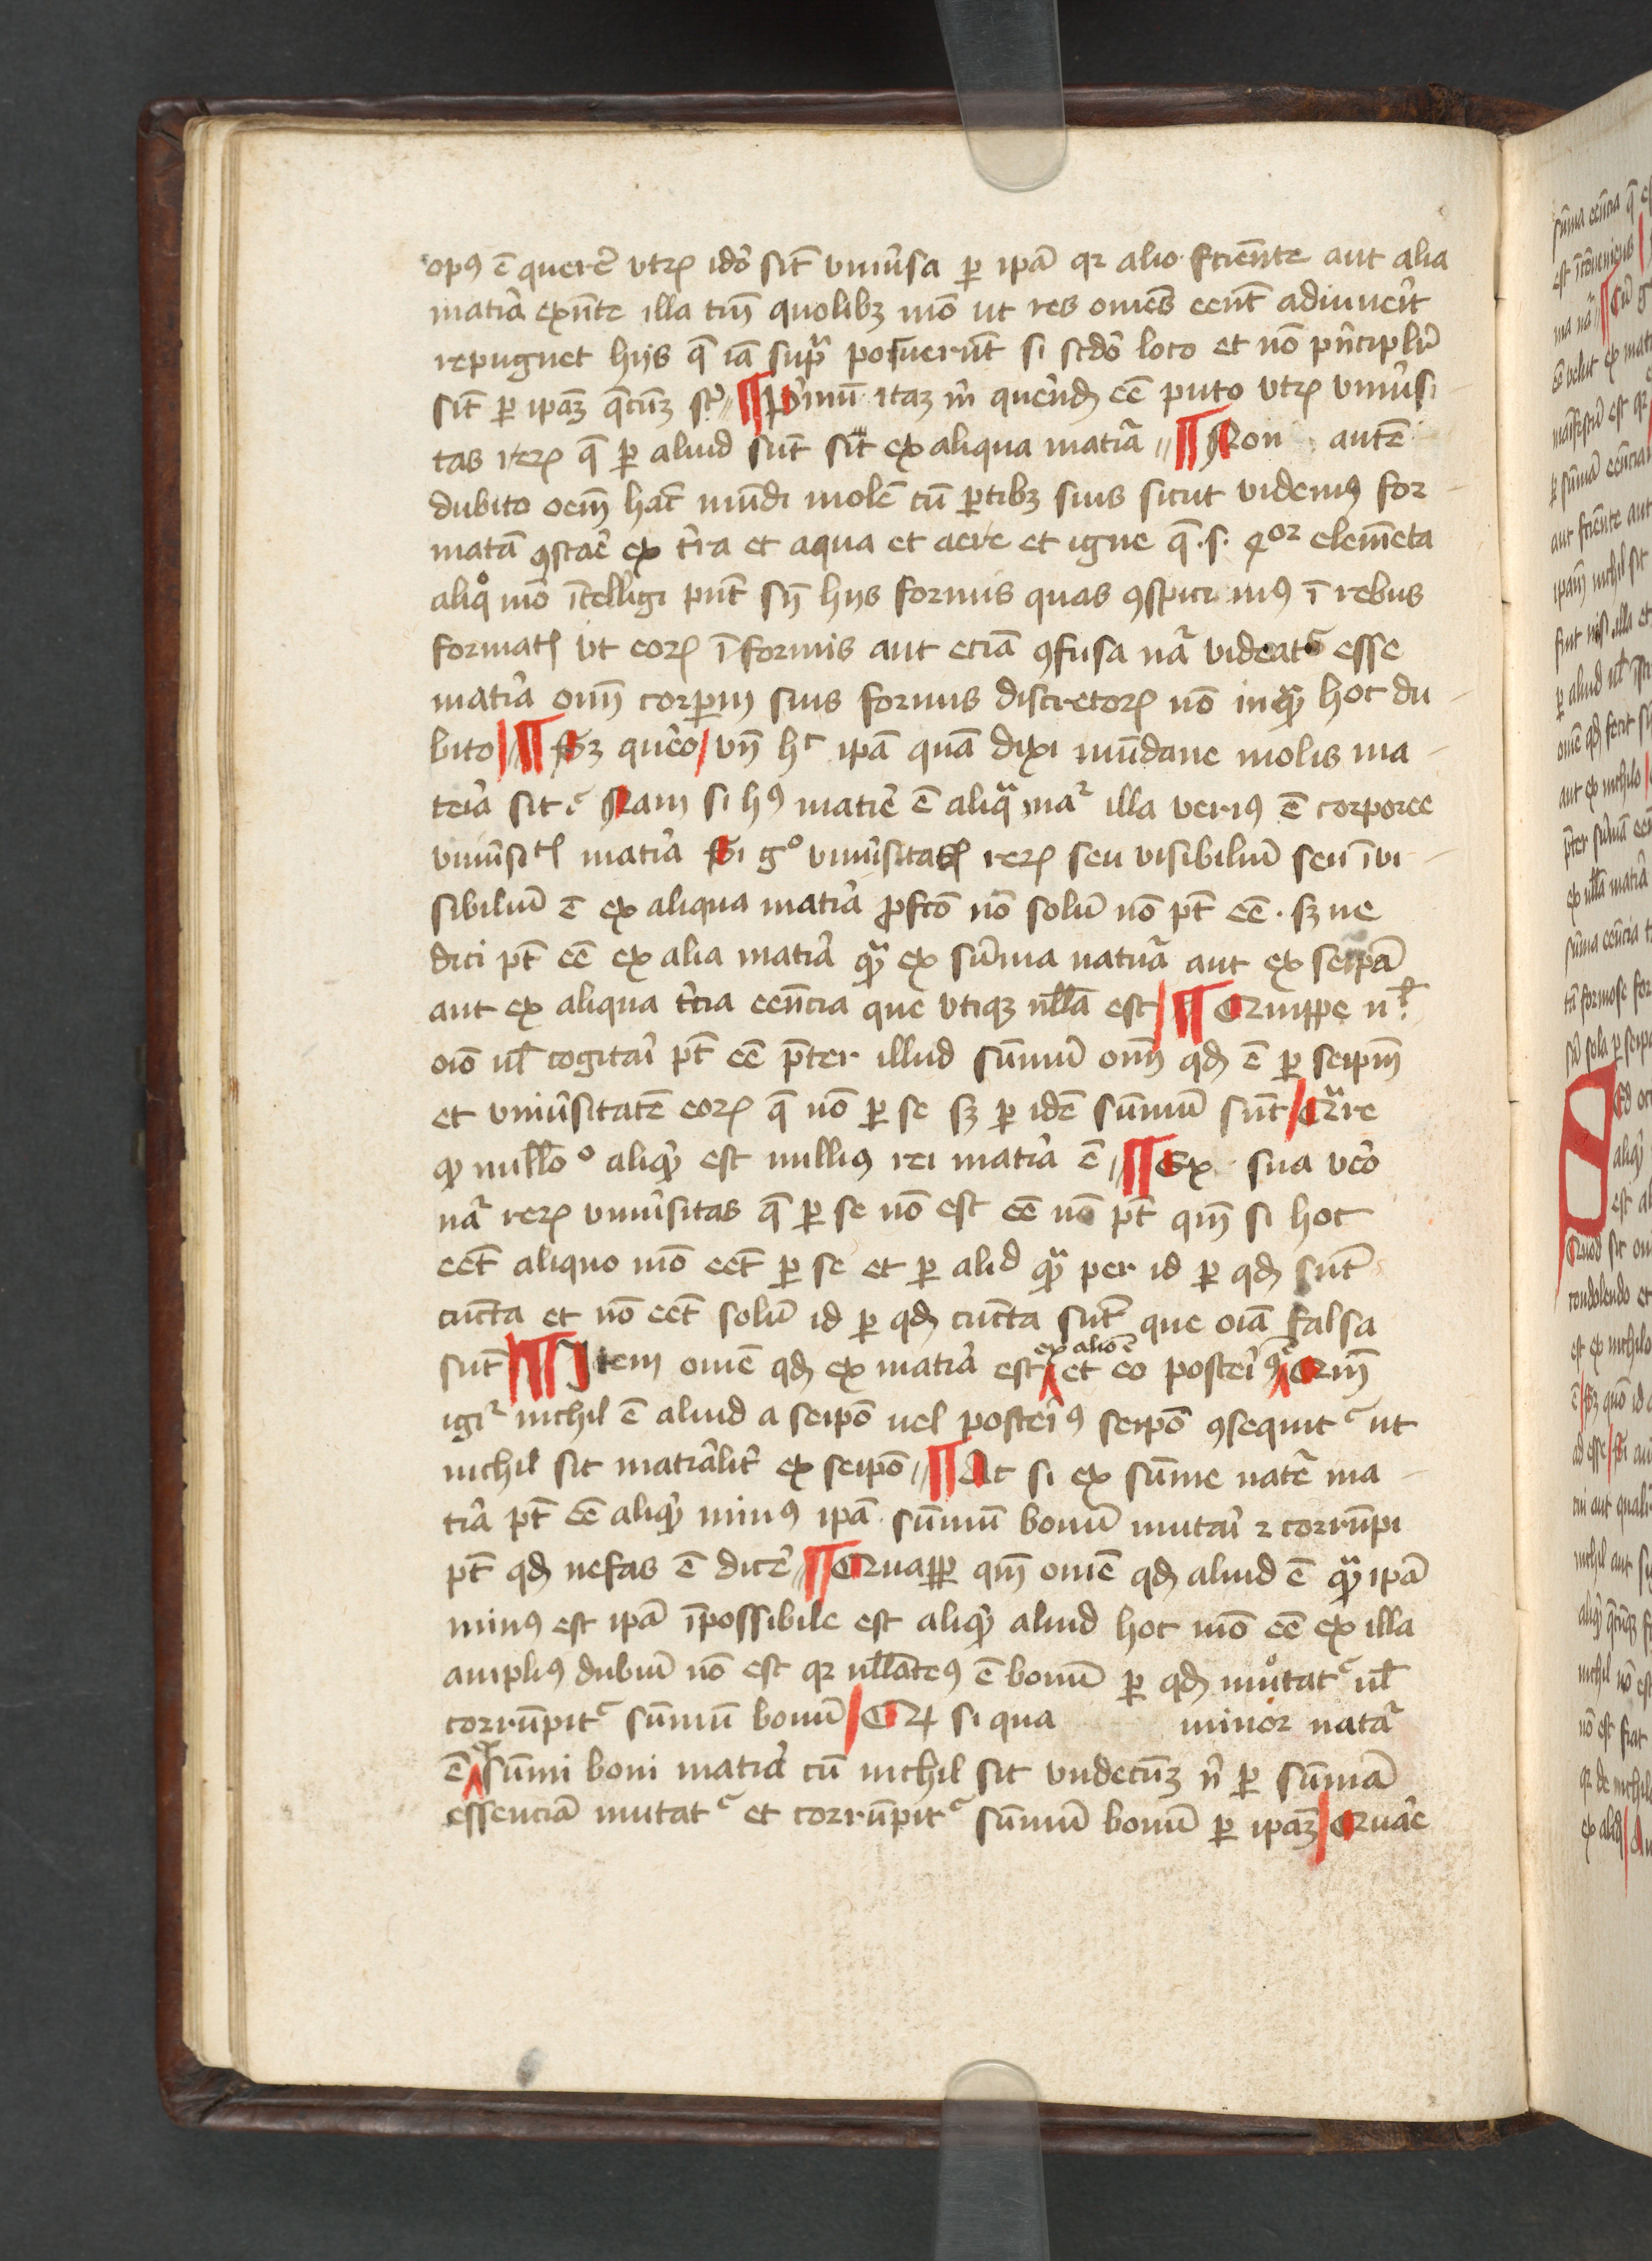 opꝰ ē querē vtrꝝ idō sīt vniūsa ꝑ ipā qꝛ alio fciēnte aut alia
matīa exn̄te illa tm̄ quolibꝫ mō ut res om̄es eēnt adiuueīt
repugnet hijs q̄ iā sup̄ posuerūt si scdō loco et nō pn̄ciplr̄
sīt ꝑ ipaꝫ q̄cūꝫ st̄ ¶ Pīmū itaꝫ m̄ quēnd eē puto vtrꝝ vniūsi
tas rerꝝ q̄ ꝑ aliud sūt sīt ex aliqua matīa ¶ Non autē
dubito oem̄ hāc mūdi molē cū ꝑtibꝫ suis sicut videmꝰ for
matā ꝯstaē ex tīra et aqua et aere et igne q̄ .s. qͦꝛ elem̄eta
aliqͦ mō ītelligi pn̄t sn̄ hijs formis quas ꝯspicimꝰ ī rebus
formatꝭ vt eoꝝ īformis aut eciā ꝯfusa nā videatᷣ esse
matīa om̄ corꝑm suis formis discretorꝝ nō inqᷓ hoc du
bito ¶ Sꝫ quēo vn̄ hͨ ipā quā dixi mūdane molis ma
teīa sit Nam si hꝰ matīe ē aliqᷓ maᷣ illa verius ē corporee
vniūsitꝭ matīa Si gͦ vniūsitatꝭ rerꝝ seu visibiliū seu īvi
sibiliū ē ex aliqua matīa ꝓfcō nō solū nō pt̄ eē . sꝫ ne
dici pt̄ eē ex alia matīa qᷓ ex sūma natūa aut ex seipā
aut ex aliqua tīcia eēncia que vtiqꝫ nll̄a est ¶ Quippe nͥl
oīo nl̄ cogitaī pt̄ eē p̄ter illud sūmū om̄ qd ē ꝑ seipm̄
et vniūsitatē eorꝝ q̄ nō ꝑ se sꝫ ꝑ idē sūmū sūt Qᷓre
qd nulloͦ aliqd est nullius rei matīa ē ¶ Ex sua vēo
nā rerꝝ vniūsitas q̄ ꝑ se nō est eē nō pt̄ qm̄ si hoc
eēt aliquo mō eēt ꝑ se et ꝑ alid qᷓ per id ꝑ qd sūt
cūcta et nō eēt solū id ꝑ qd cūcta sūt que oīa falsa
sūt ¶ Item om̄e qd ex matīa est ex alio ē et eo posteīꝰ Qm̄
igiᷣ nichil ē aliud a seipō uel posteīꝰ seipō ꝯsequitᷣ ut
nichil sit matīalīt ex seipō ¶ At si ex sūme natē ma
tīa pt̄ eē aliqd minꝰ ipā sūmū bonū mutaī ⁊ corrūpi
pt̄ qd nefas ē dicē ¶ Quaꝓꝑ qm̄ om̄e qd aliud ē qᷓ ipā
minꝰ est ipā īpossibile est aliqd aliud hoc mō eē ex illa
ampliꝰ dubiū nō est qꝛ nll̄atēꝰ ē bonū ꝑ qd mutatᷣ nl̄
corrūpitᷣ sūmū bonū Qd si qua minor natā
ē ex sūmi boni matīa cū nichil sit vndecūꝫ n̄ ꝑ sūmā
essenciā mutatᷣ et corrūpitᷣ sūmū bonū ꝑ ipaꝫ Quaē